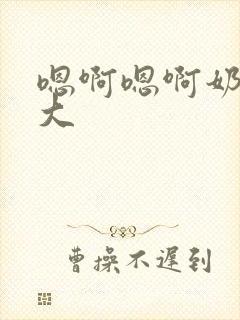 嗯啊嗯啊奶
大
曹操不遲到